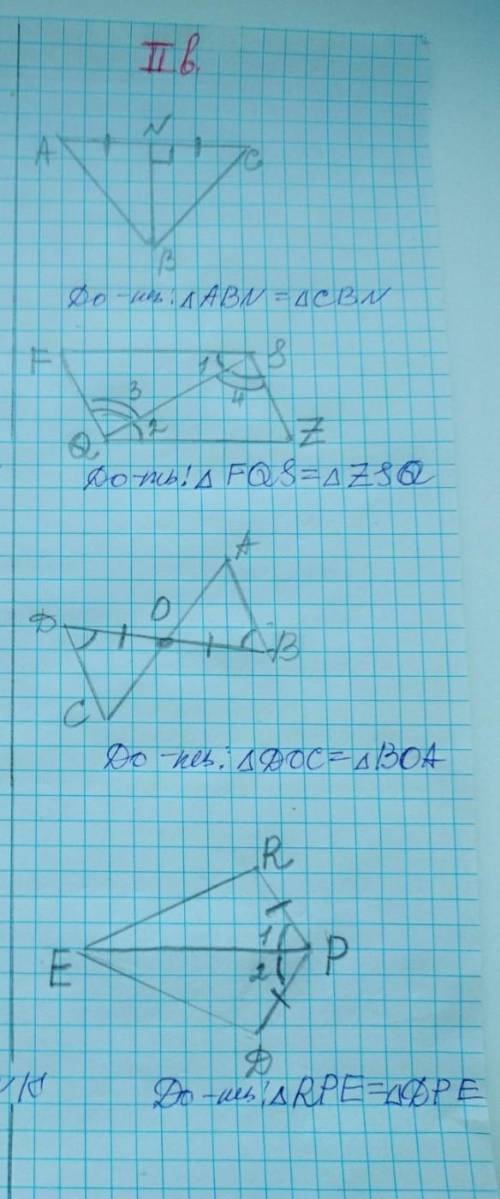 II в.
N
A C
B
До-ть: △ABN=△CBN
F 1 S
3 4
Q 2 Z
До-ть: △FQS=△ZSQ
A
D O
B
C
До-ть: △DOC=△BOA
R
1
E P
2
D
До-ть: △RPE=△DPE